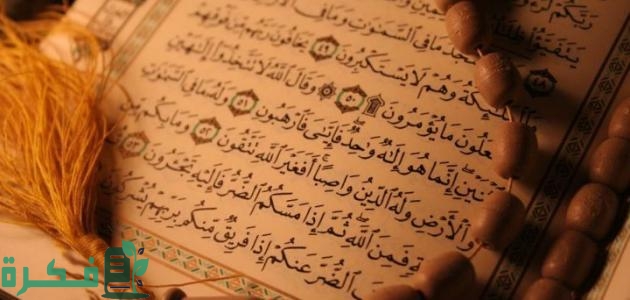 رَبَّكُمْ
يَتَفَيَّؤُا۟ ظِلَٰلُ ٤٨
يَسْجُدُ مَا فِي ٱلسَّمَٰوَٰتِ وَمَا فِي
وَٱلْمَلَٰٓئِكَةُ وَهُمْ لَا يَسْتَكْبِرُونَ ٤٩ يَخَافُونَ رَبَّهُم مِّن فَوْقِهِمْ
عَلُونَ مَا يُؤْمَرُونَ ۩ ٥٠ ۞ وَقَالَ ٱللَّهُ لَا تَتَّخِذُوٓا۟ إِلَٰهَيْنِ
ٱثْنَيْنِ إِنَّمَا هُوَ إِلَٰهٌ وَٰحِدٌ فَإِيَّٰيَ فَٱرْهَبُونِ ٥١ وَلَهُۥ مَا فِي ٱلسَّمَٰوَٰتِ
وَٱلْأَرْضِ وَلَهُ ٱلدِّينُ وَاصِبًا ۚ أَفَغَيْرَ ٱللَّهِ تَتَّقُونَ ٥٢ وَمَا بِكُم مِّن
ةٍ فَمِنَ ٱللَّهِ ۖ ثُمَّ إِذَا مَسَّكُمُ ٱلضُّرُّ فَإِلَيْهِ تَجْـَٔرُونَ ٥٣
ٱلضُّرَّ عَنكُمْ إِذَا فَرِيقٌ مِّنكُم بِرَبِّهِمْ يُشْرِكُونَ
فكرة